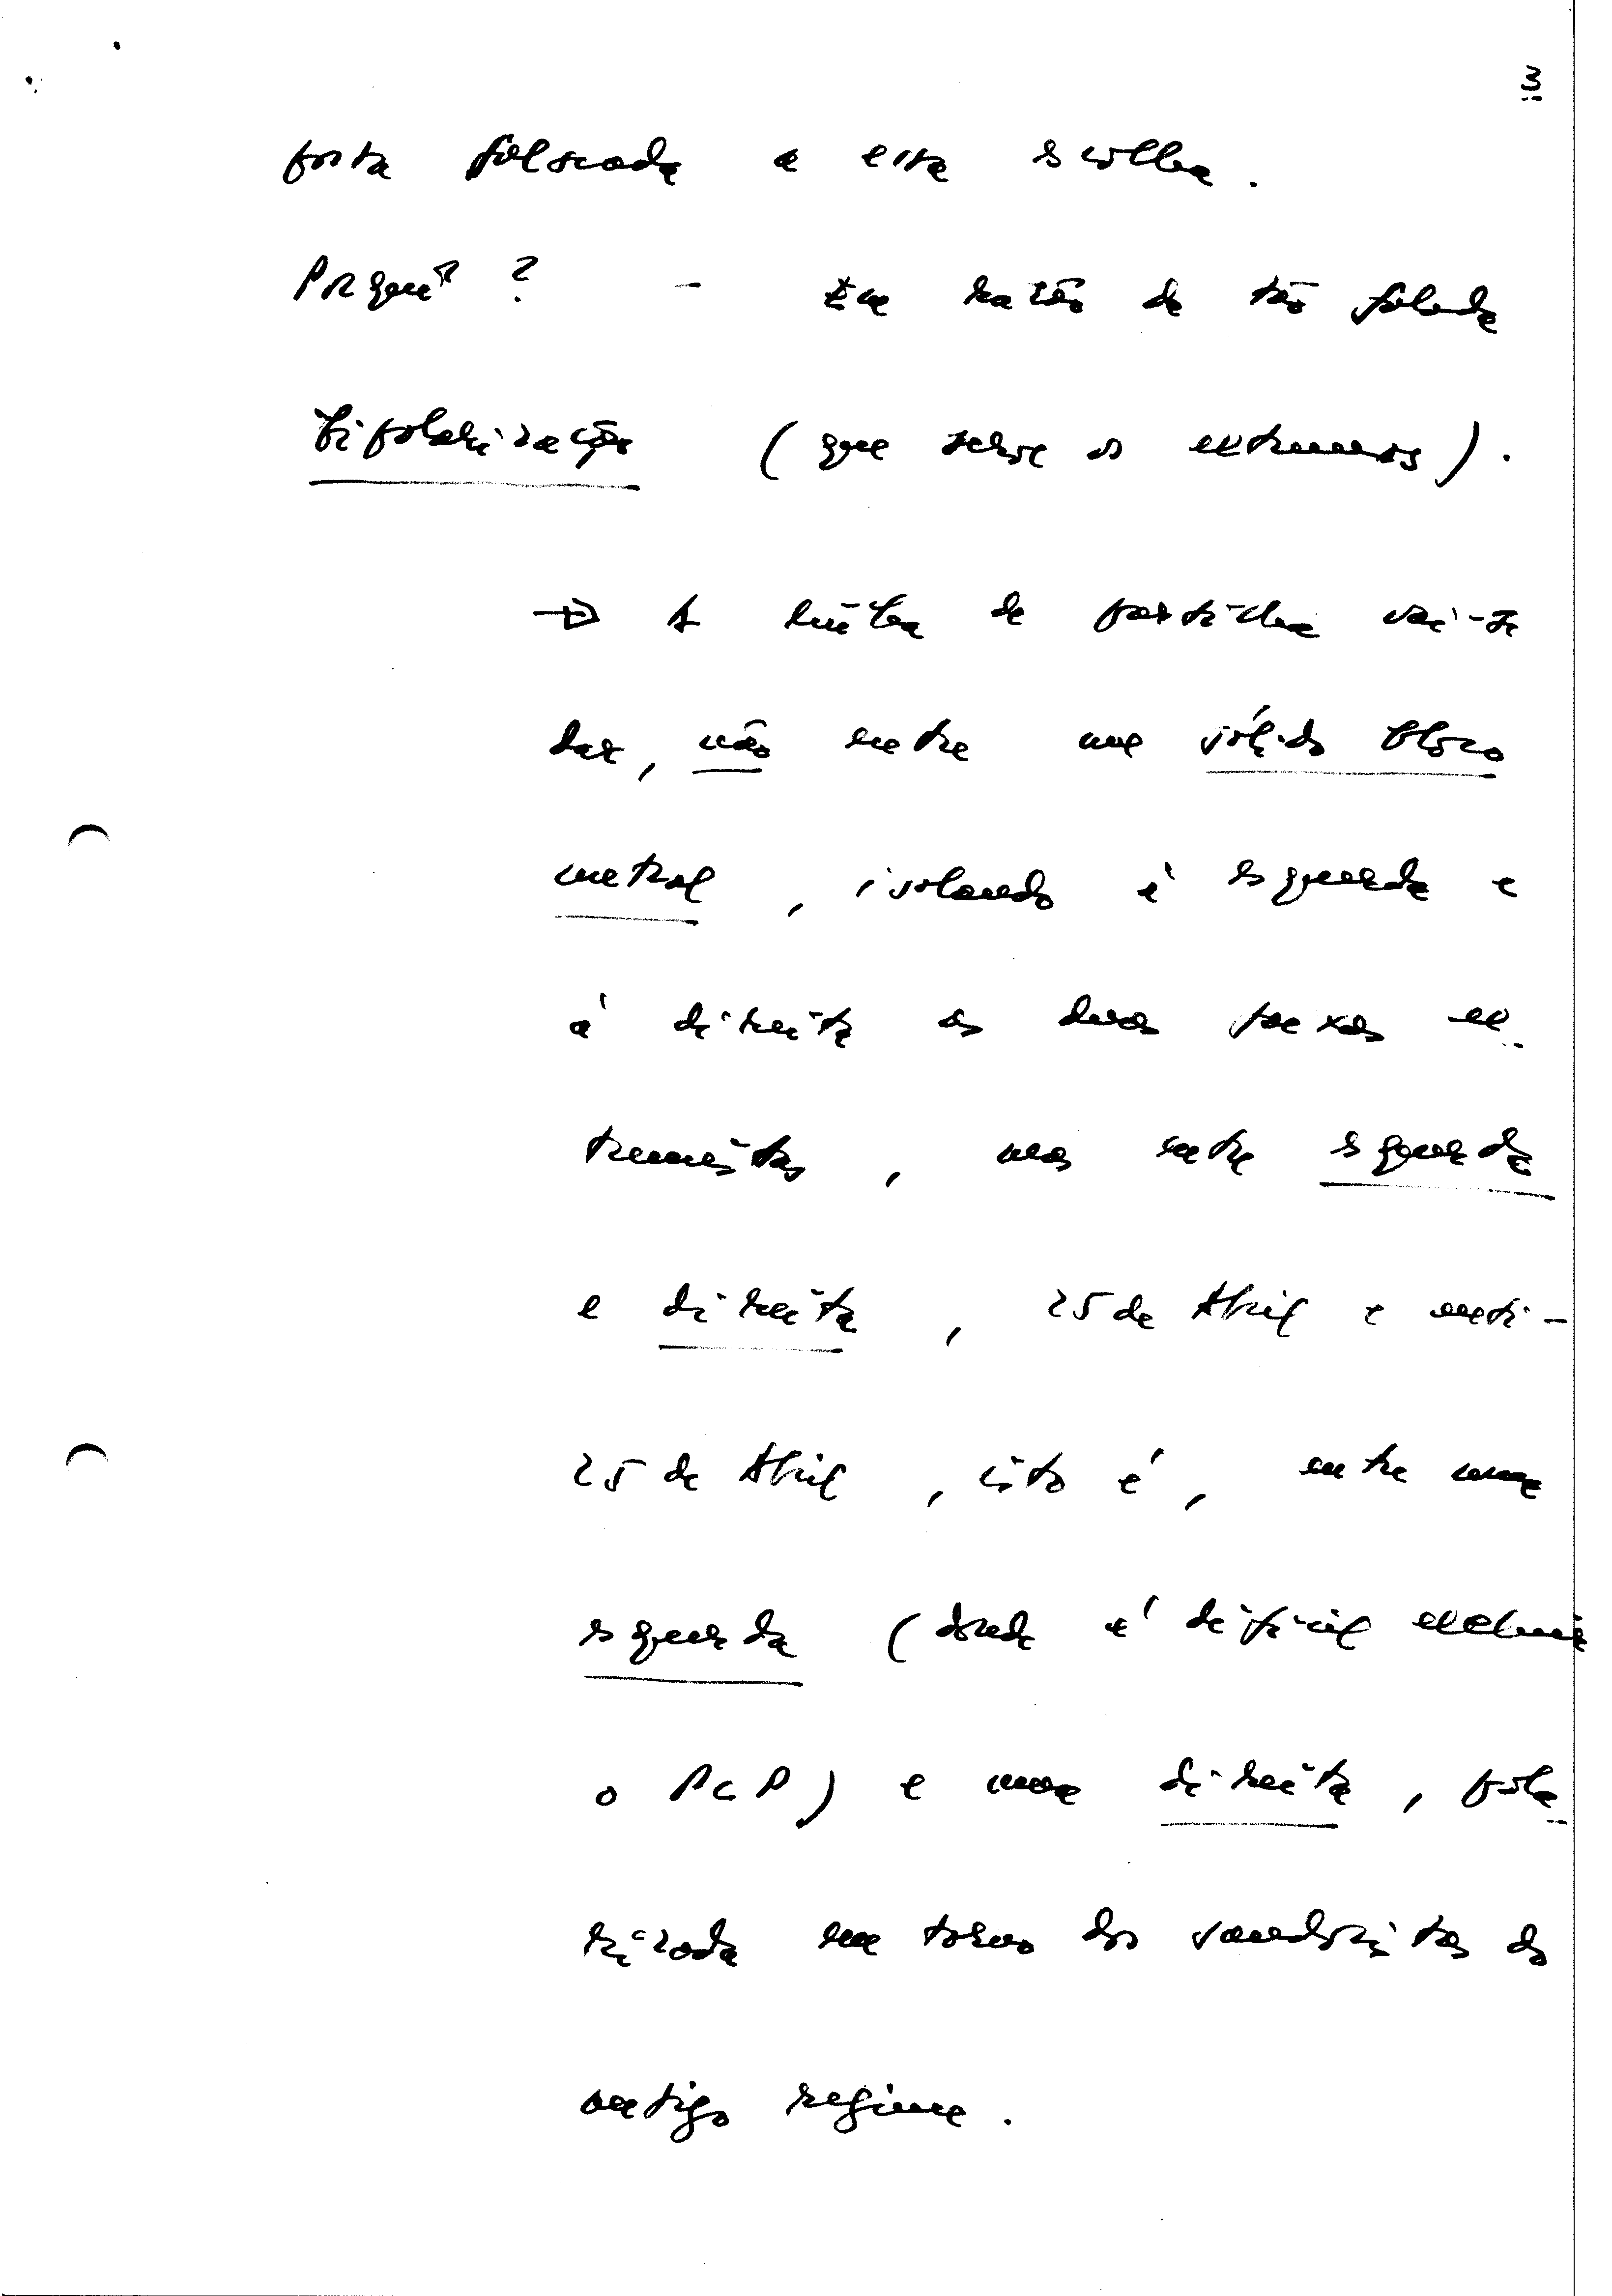 3
posta falseada a esta escolha.
Porquê? - Em razão da tão falada
bipolarização (que serve os extremos).
→ A linha de partilha vai-se
dar, não entre um sólido bloco
central, isolando à esquerda e
à direita as duas faixas ex
tremistas, mas entre esquerda
e direita, 25 de Abril e anti-
25 de Abril, isto é, entre uma
esquerda (donde é difícil excluir
o PCP) e uma direita, pola
rizada em torno dos saudosistas do
antigo regime.